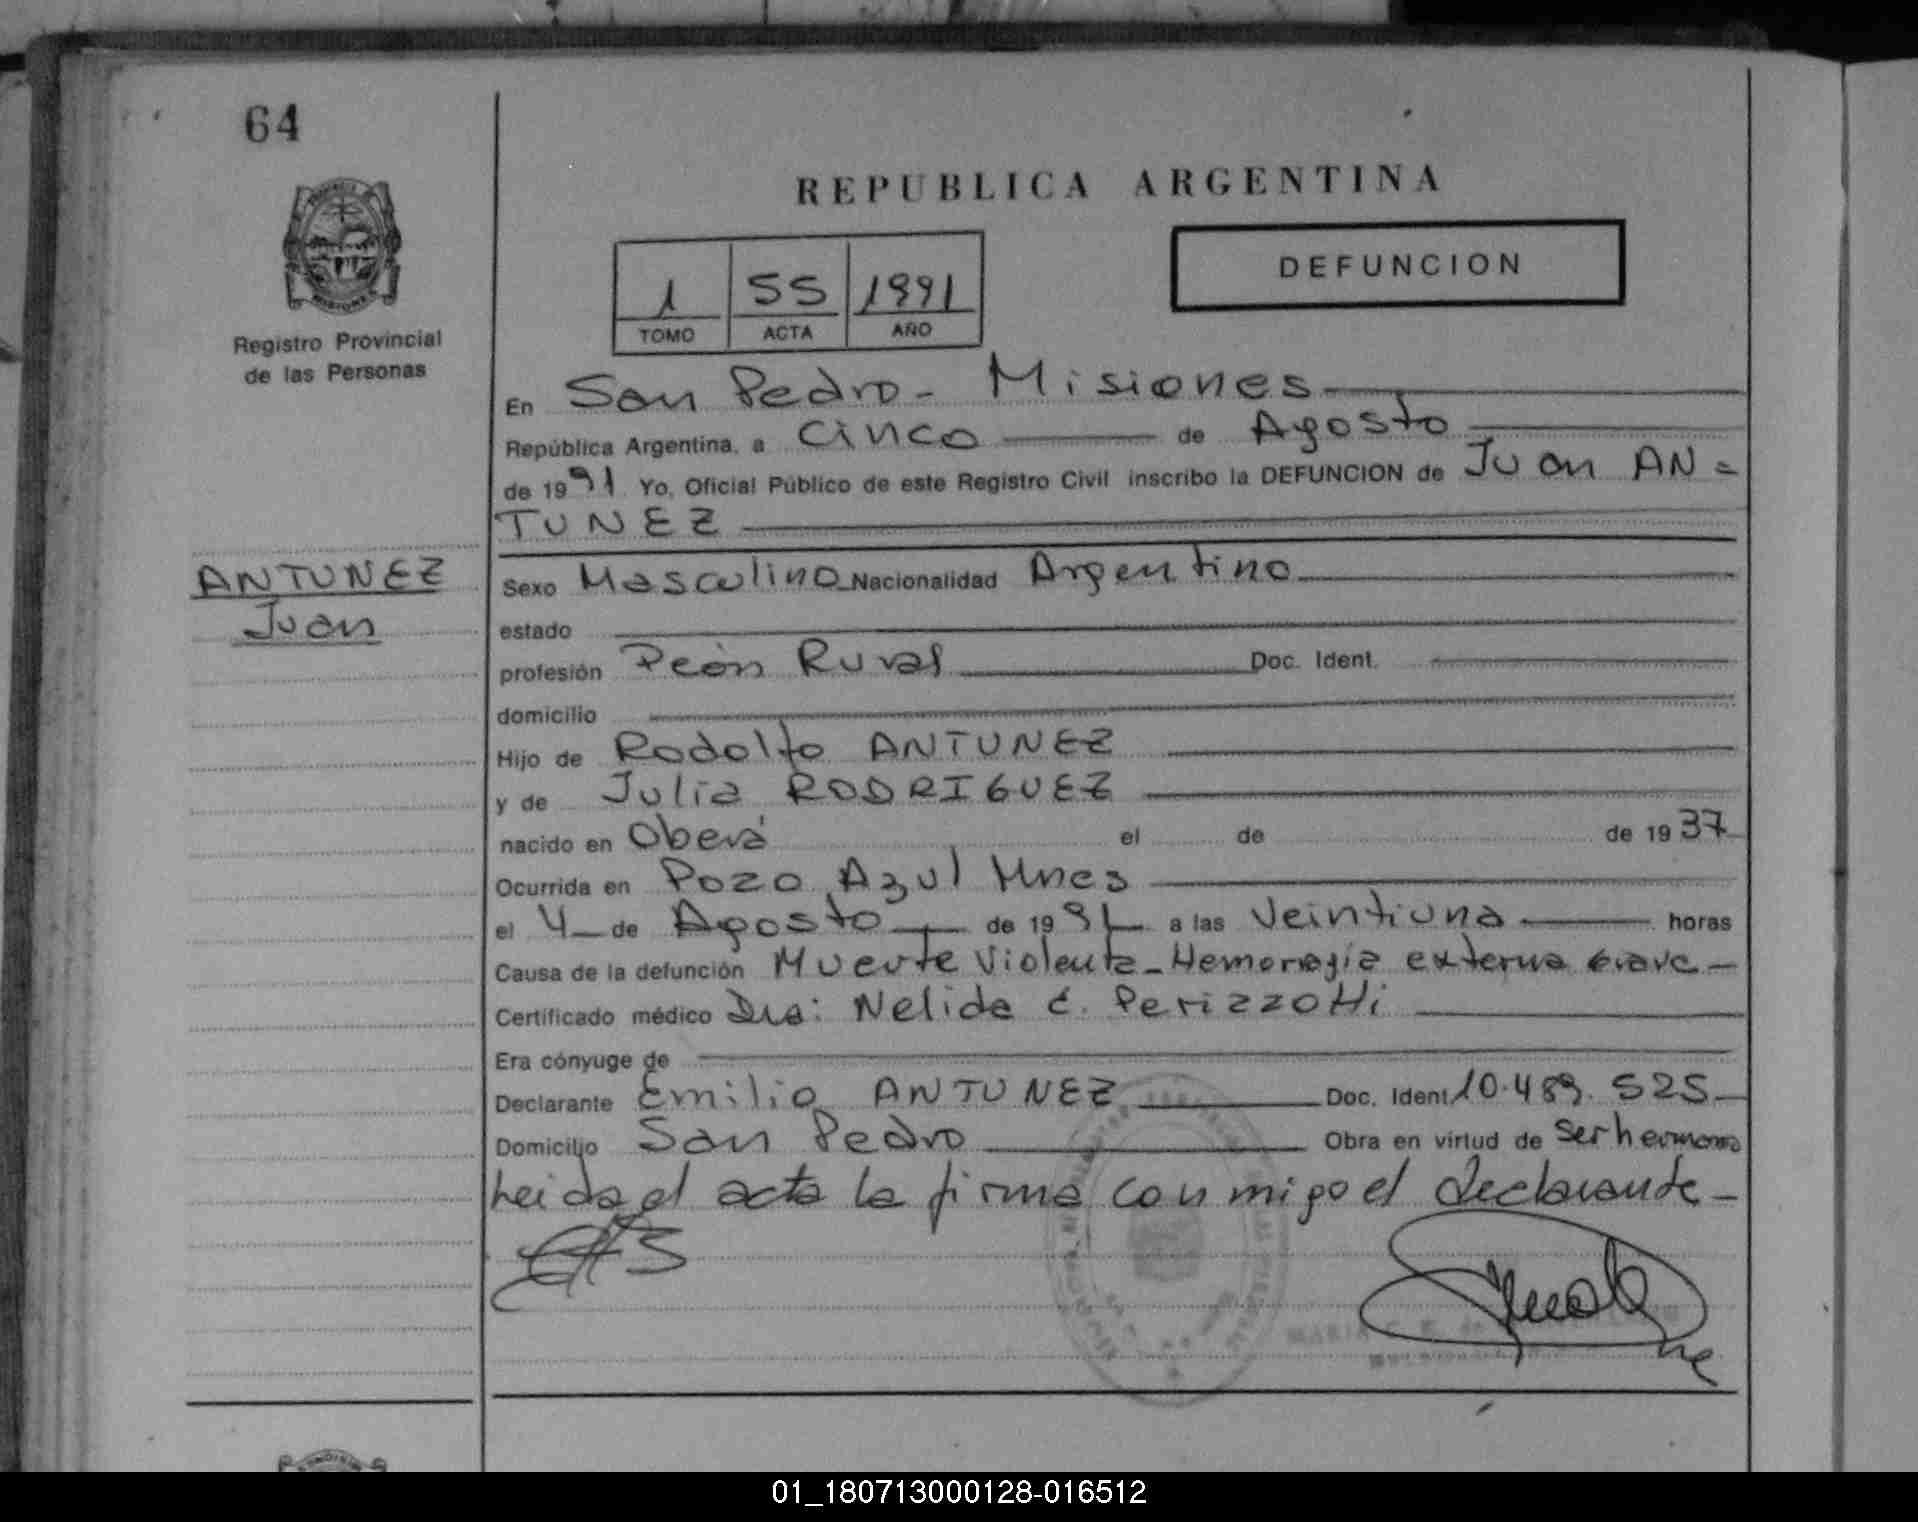 64
REPUBLICA ARGENTINA
DEFUNCION
1 55 1991
TOMO ACTA AÑO
Registro Provincial
de las Personas
MISIONES
En San Pedro - Misiones
República Argentina, a Cinco de Agosto
de 1991 Yo, Oficial Público de este Registro Civil inscribo la DEFUNCION de Juan AN=
TUNEZ
ANTUNEZ
Juan
Sexo Masculino Nacionalidad Argentino
estado
profesión Peón Rural Doc. Ident.
domicilio
Hijo de Rodolfo ANTUNEZ
y de Julia RODRIGUEZ
nacido en Oberá el de de 1937
Ocurrida en Pozo Azul Mnes
el 4 de Agosto de 1991 a las Veintiuna horas
Causa de la defunción Muerte Violenta - Hemoragia externa Grave -
Certificado médico Dra: Nelida C. Perizzotti
Era cónyuge de
Declarante Emilio ANTUNEZ Doc. Ident 10.489.525
Domicilio San Pedro Obra en virtud de ser hermano
Leida el acta la firma conmigo el declarante -
MARIA
01_180713000128-016512